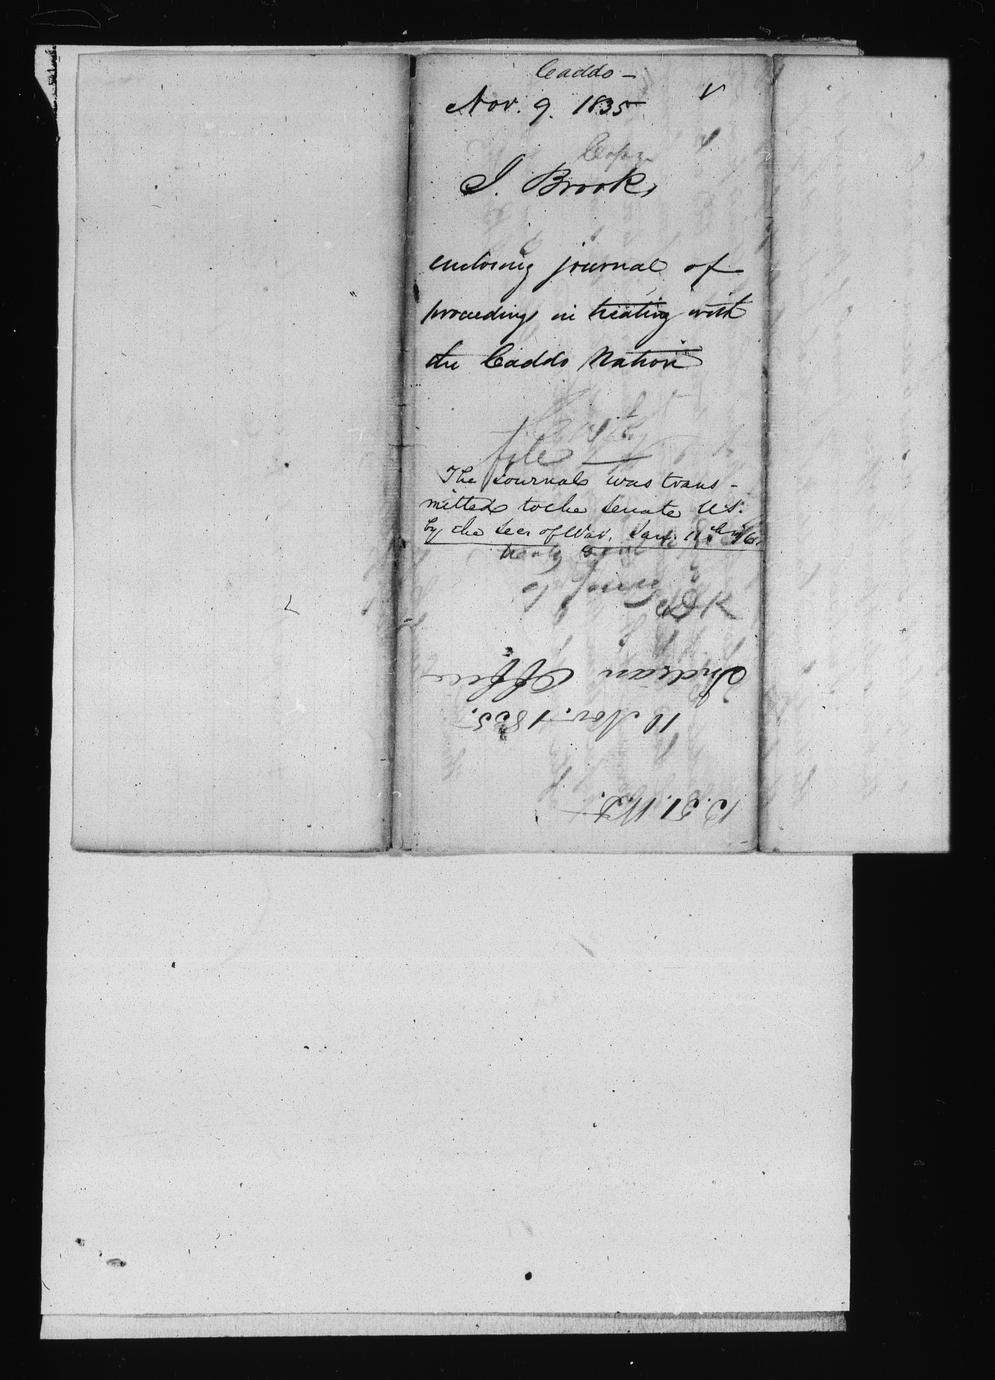 Caddo -
Nov. 9. 1835
Copy
J. Brooks
enclosing journal of
proceedings in treating with
the Caddo Nation
file
The Journal was trans-
mitted to the Senate U.S.
by the Secr of War. Jany. 11th
D K
Indian Office
10 Nov. 1835.